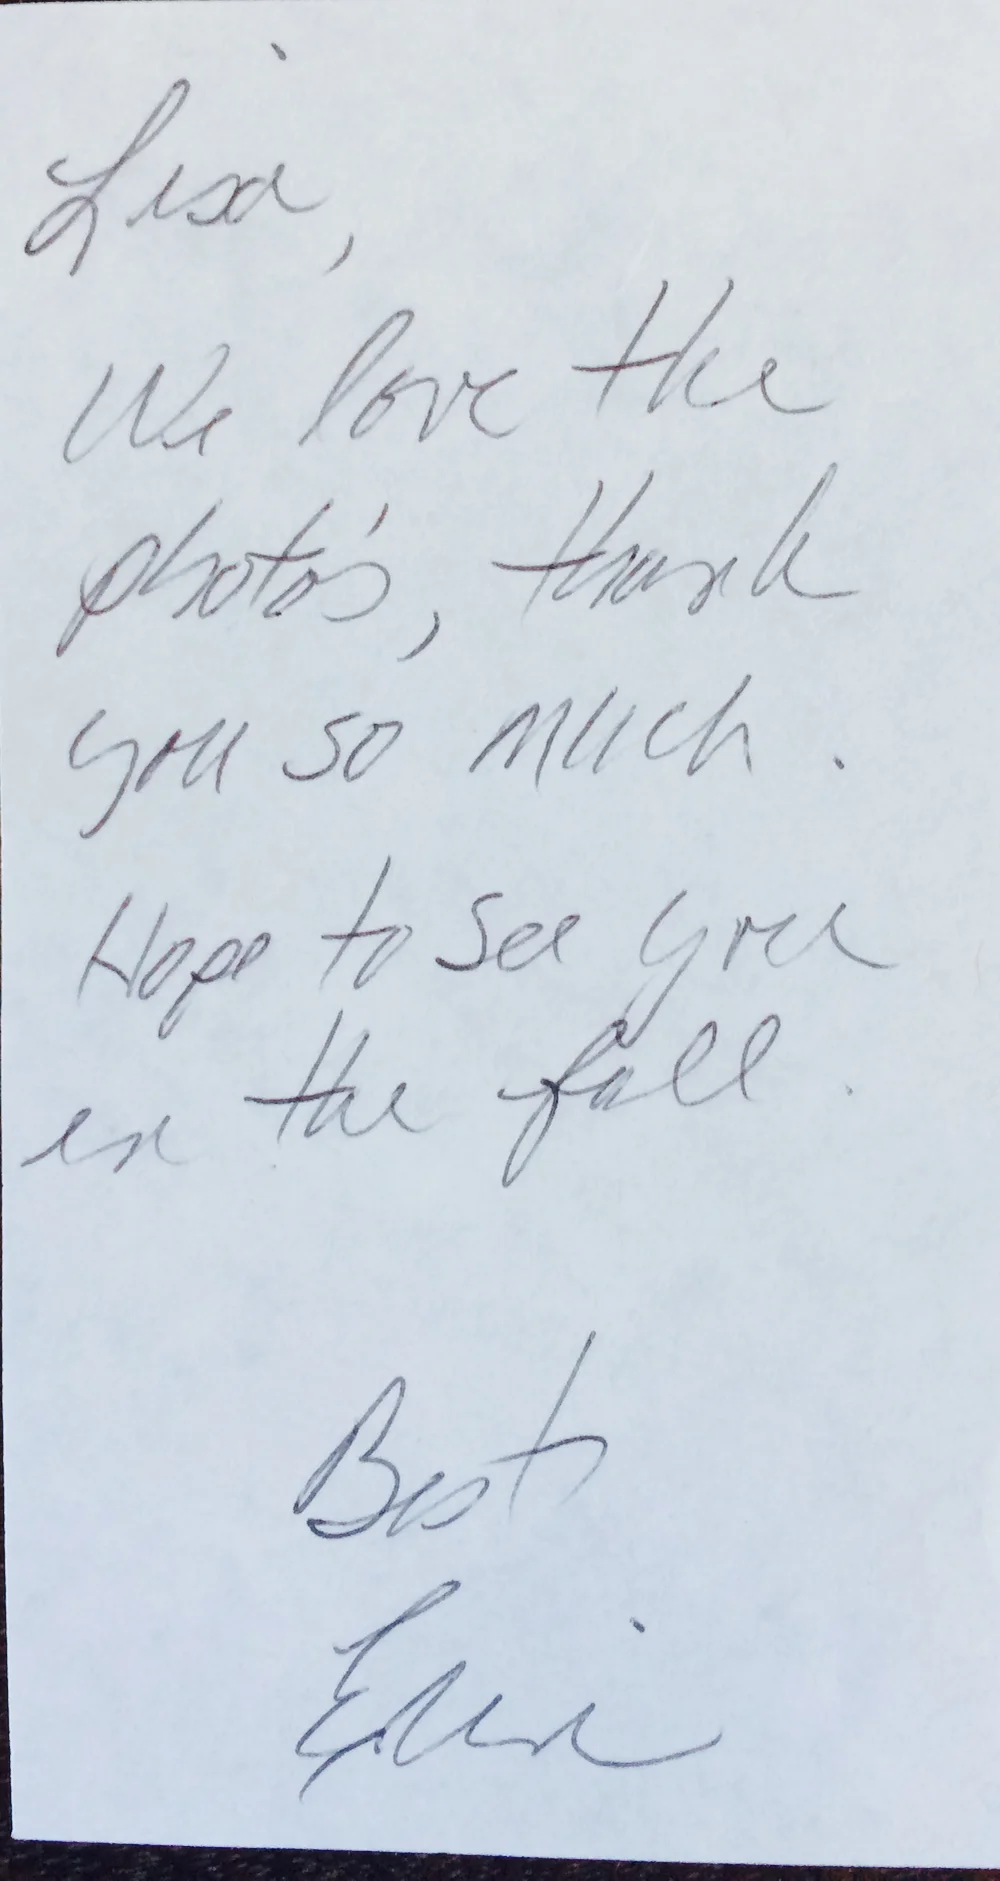 Lisa,
We love the
photo's, thank
you so much.
Hope to see you
in the fall.
Best